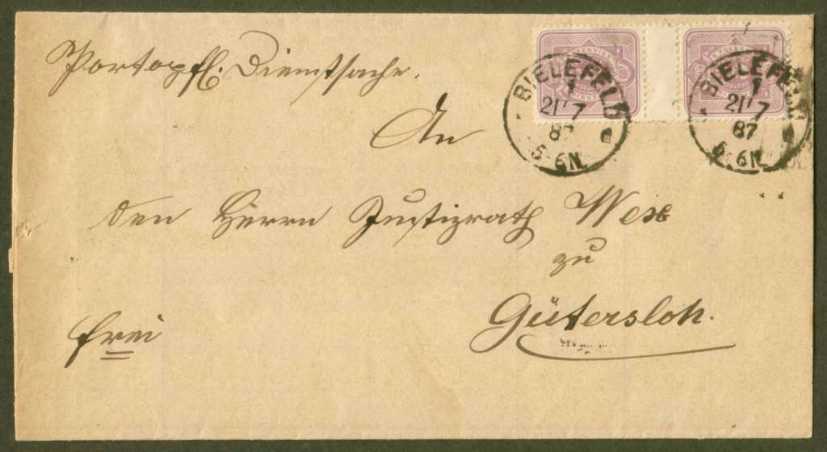 Portopfl. Dienstsache.
BIELEFELD
1
21/7
87
5-6N
BIELEFELD
1
21/7
87
5-6N
An
den Herrn Justizrath
zu
Gütersloh.
frei